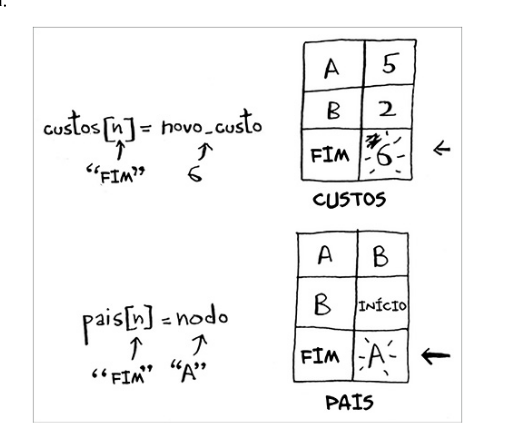 custos[n] = novo_custo
"FIM" 6
A 5
B 2
FIM 6
CUSTOS
pais[n] = nodo
"FIM" "A"
A B
B INÍCIO
FIM A
PAIS